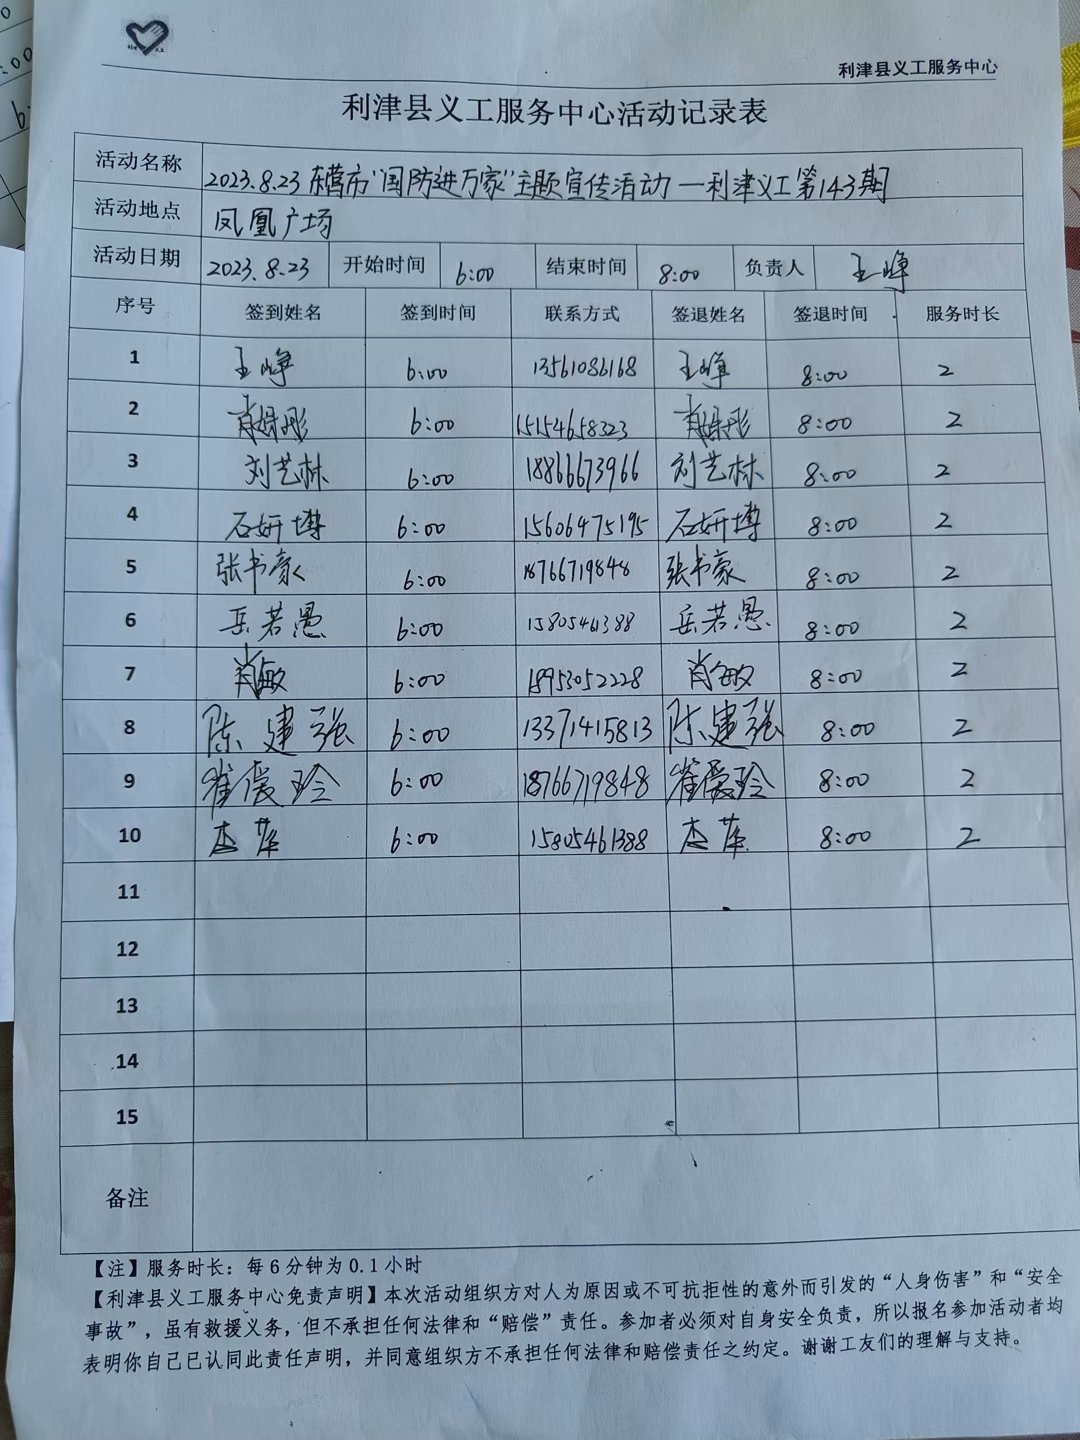 利津县义工服务中心
利津县义工服务中心活动记录表
活动名称 2023.8.23 东营市“国防进万家”主题宣传活动—利津义工第143期
活动地点 凤凰广场
活动日期 2023.8.23 开始时间 6:00 结束时间 8:00 负责人 王峥
序号 签到姓名 签到时间 联系方式 签退姓名 签退时间 服务时长
1 王峥 6:00 13561086168 王峥 8:00 2
2 肖姝彤 6:00 15154658323 肖姝彤 8:00 2
3 刘艺林 6:00 18866673966 刘艺林 8:00 2
4 石妍博 6:00 15606475195 石妍博 8:00 2
5 张书豪 6:00 18766719848 张书豪 8:00 2
6 岳若愚 6:00 15805461388 岳若愚 8:00 2
7 肖敏 6:00 18953052228 肖敏 8:00 2
8 陈建强 6:00 13371415813 陈建强 8:00 2
9 崔爱玲 6:00 18766719848 崔爱玲 8:00 2
10 6:00 15805461388 8:00 2
11
12
13
14
15
备注
【注】服务时长：每6分钟为0.1小时
【利津县义工服务中心免责声明】本次活动组织方对人为原因或不可抗拒性的意外而引发的“人身伤害”和“安全
事故”，虽有救援义务，但不承担任何法律和“赔偿”责任。参加者必须对自身安全负责，所以报名参加活动者均
表明你自己已认同此责任声明，并同意组织方不承担任何法律和赔偿责任之约定。谢谢工友们的理解与支持。